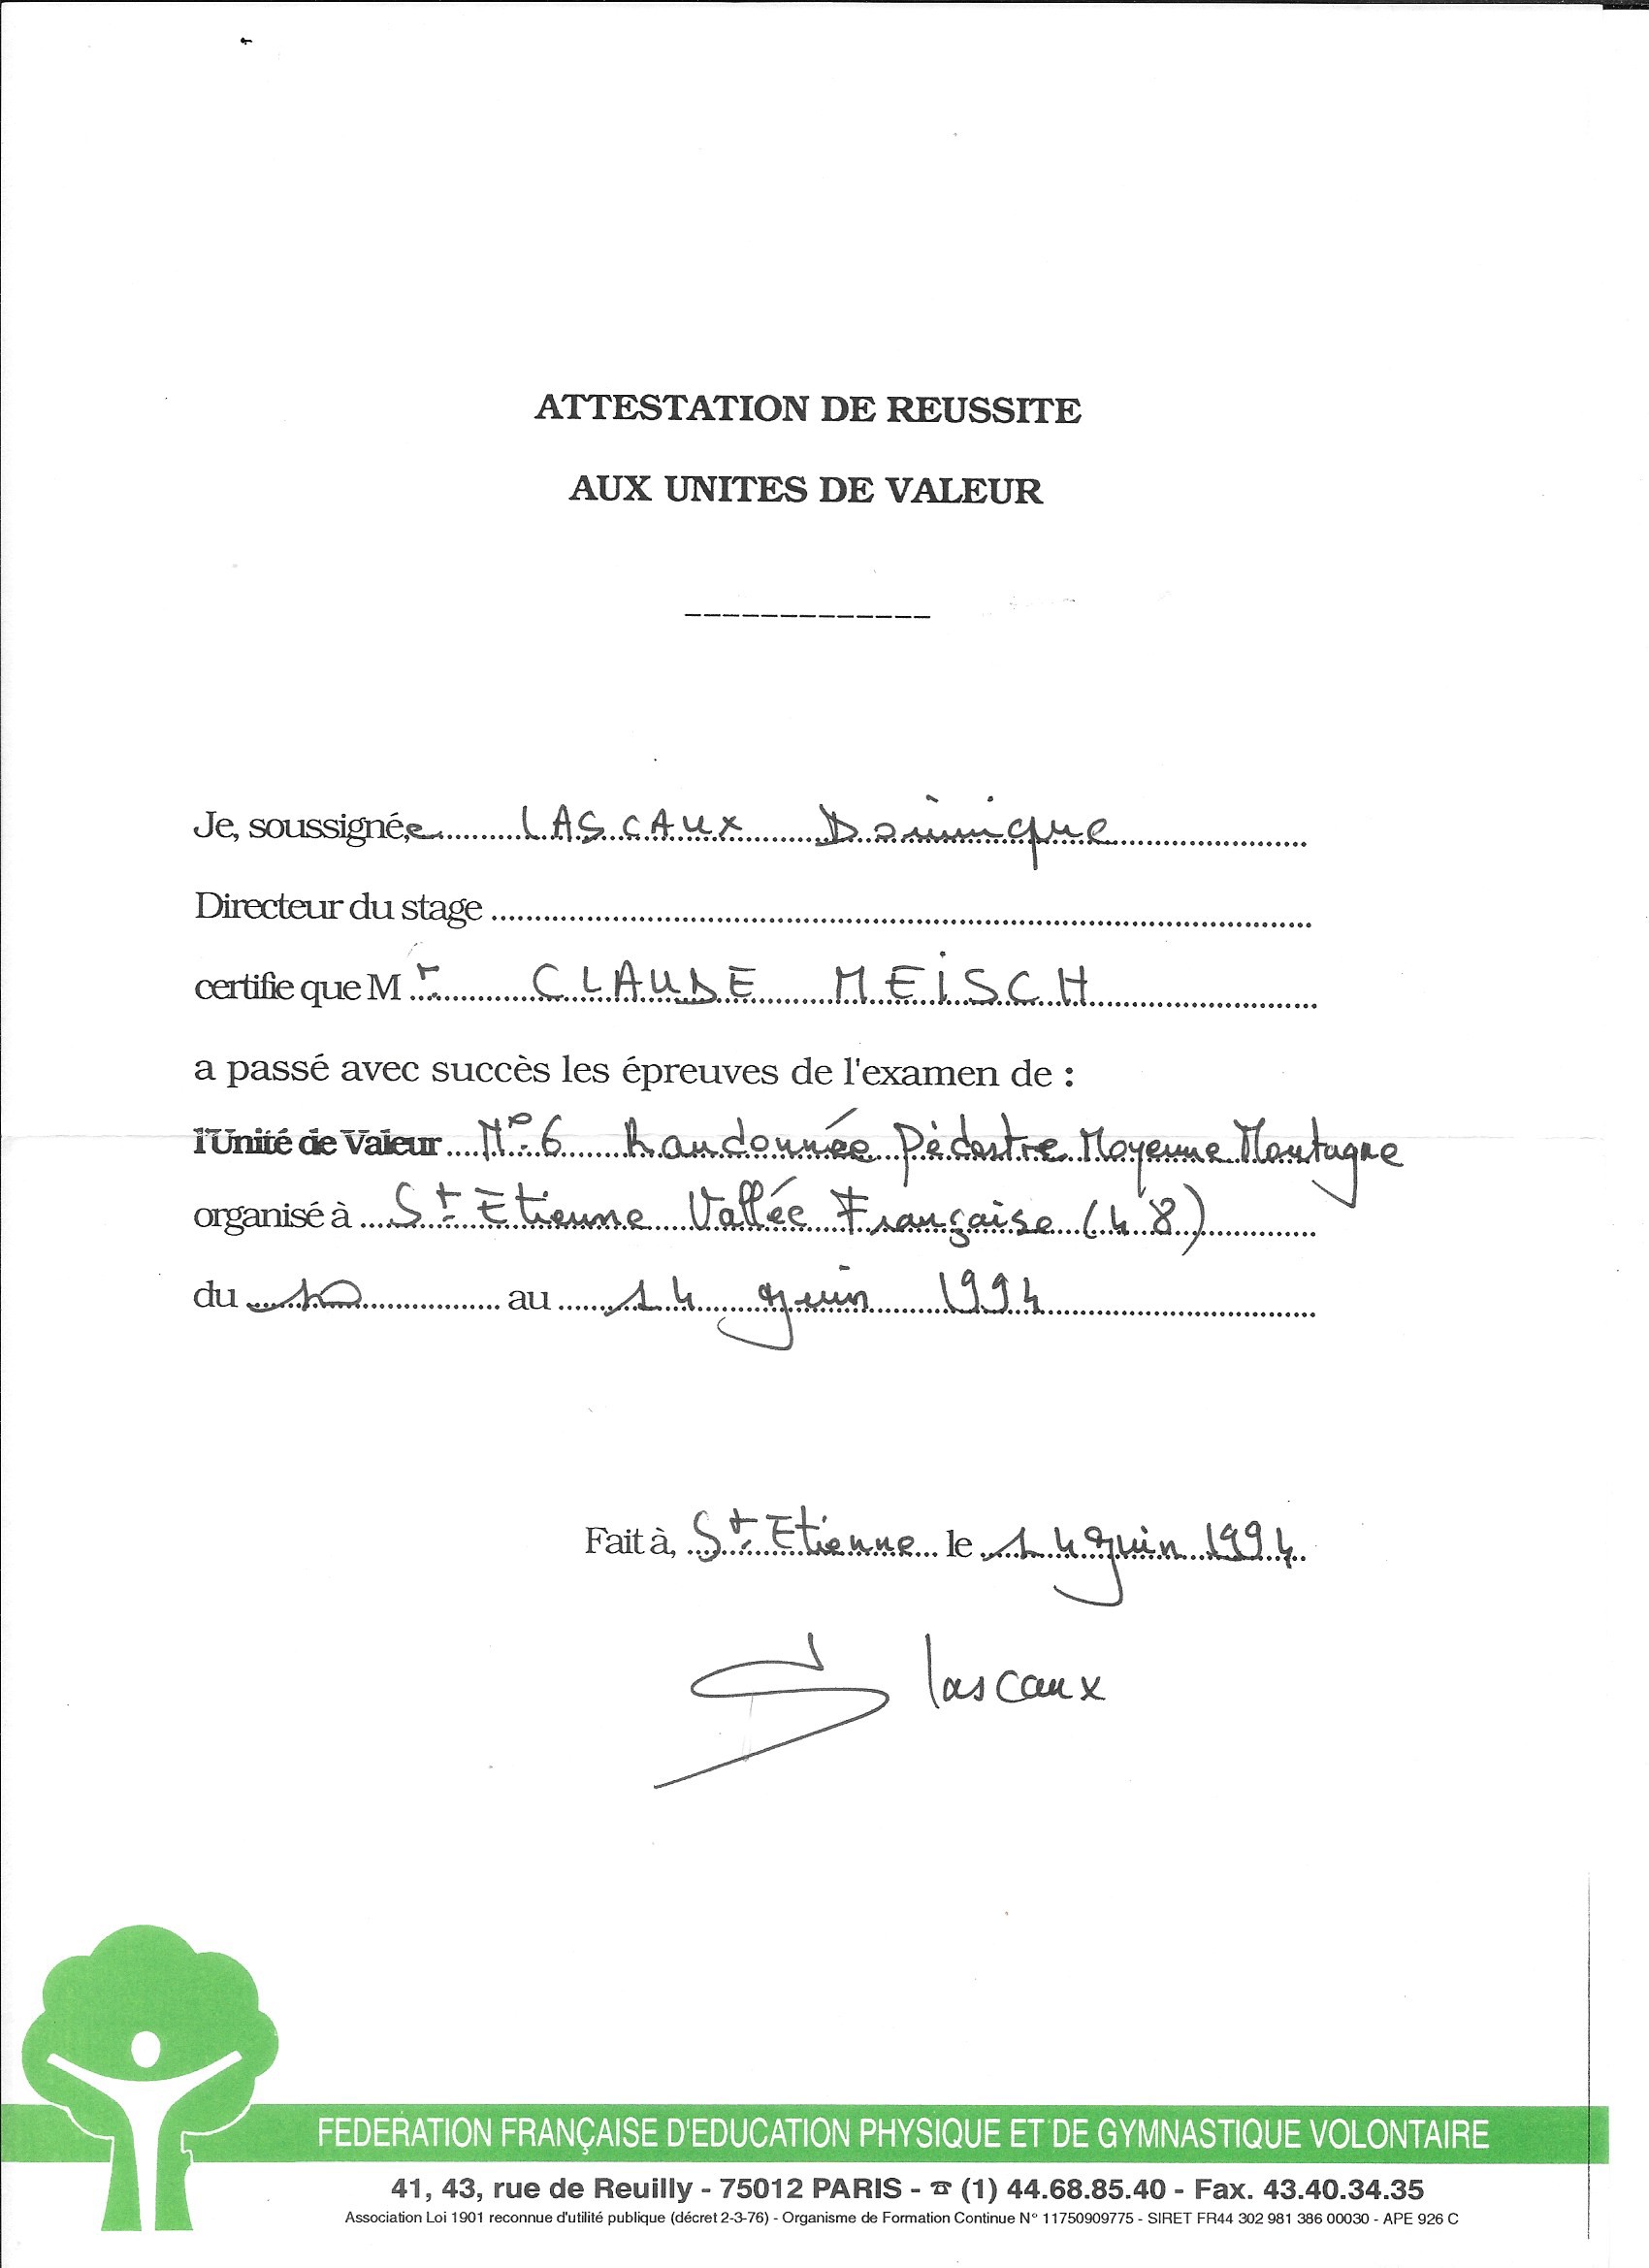 ATTESTATION DE REUSSITE
AUX UNITES DE VALEUR
-------------
Je, soussignée LASCAUX Dominique
Directeur du stage
certifie que Mr. CLAUDE MEISCH
a passé avec succès les épreuves de l'examen de :
l'Unité de Valeur N° 6 Randonnée Pédestre Moyenne Montagne
organisé à St Etienne Vallée Française (48)
du 10 au 14 juin 1994
Fait à, St Etienne le 14 juin 1994
Lascaux
FEDERATION FRANÇAISE D'EDUCATION PHYSIQUE ET DE GYMNASTIQUE VOLONTAIRE
41, 43, rue de Reuilly - 75012 PARIS - ☎ (1) 44.68.85.40 - Fax. 43.40.34.35
Association Loi 1901 reconnue d'utilité publique (décret 2-3-76) - Organisme de Formation Continue N° 11750909775 - SIRET FR44 302 981 386 00030 - APE 926 C